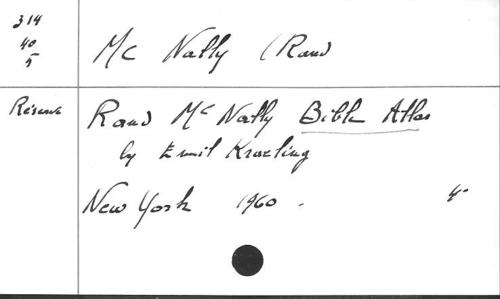 314
40
5
Mc Nally (Rand
Réserve
Rand Mc Nally Bible Atlas
by Emil Kraeling
New York 1960.
4°